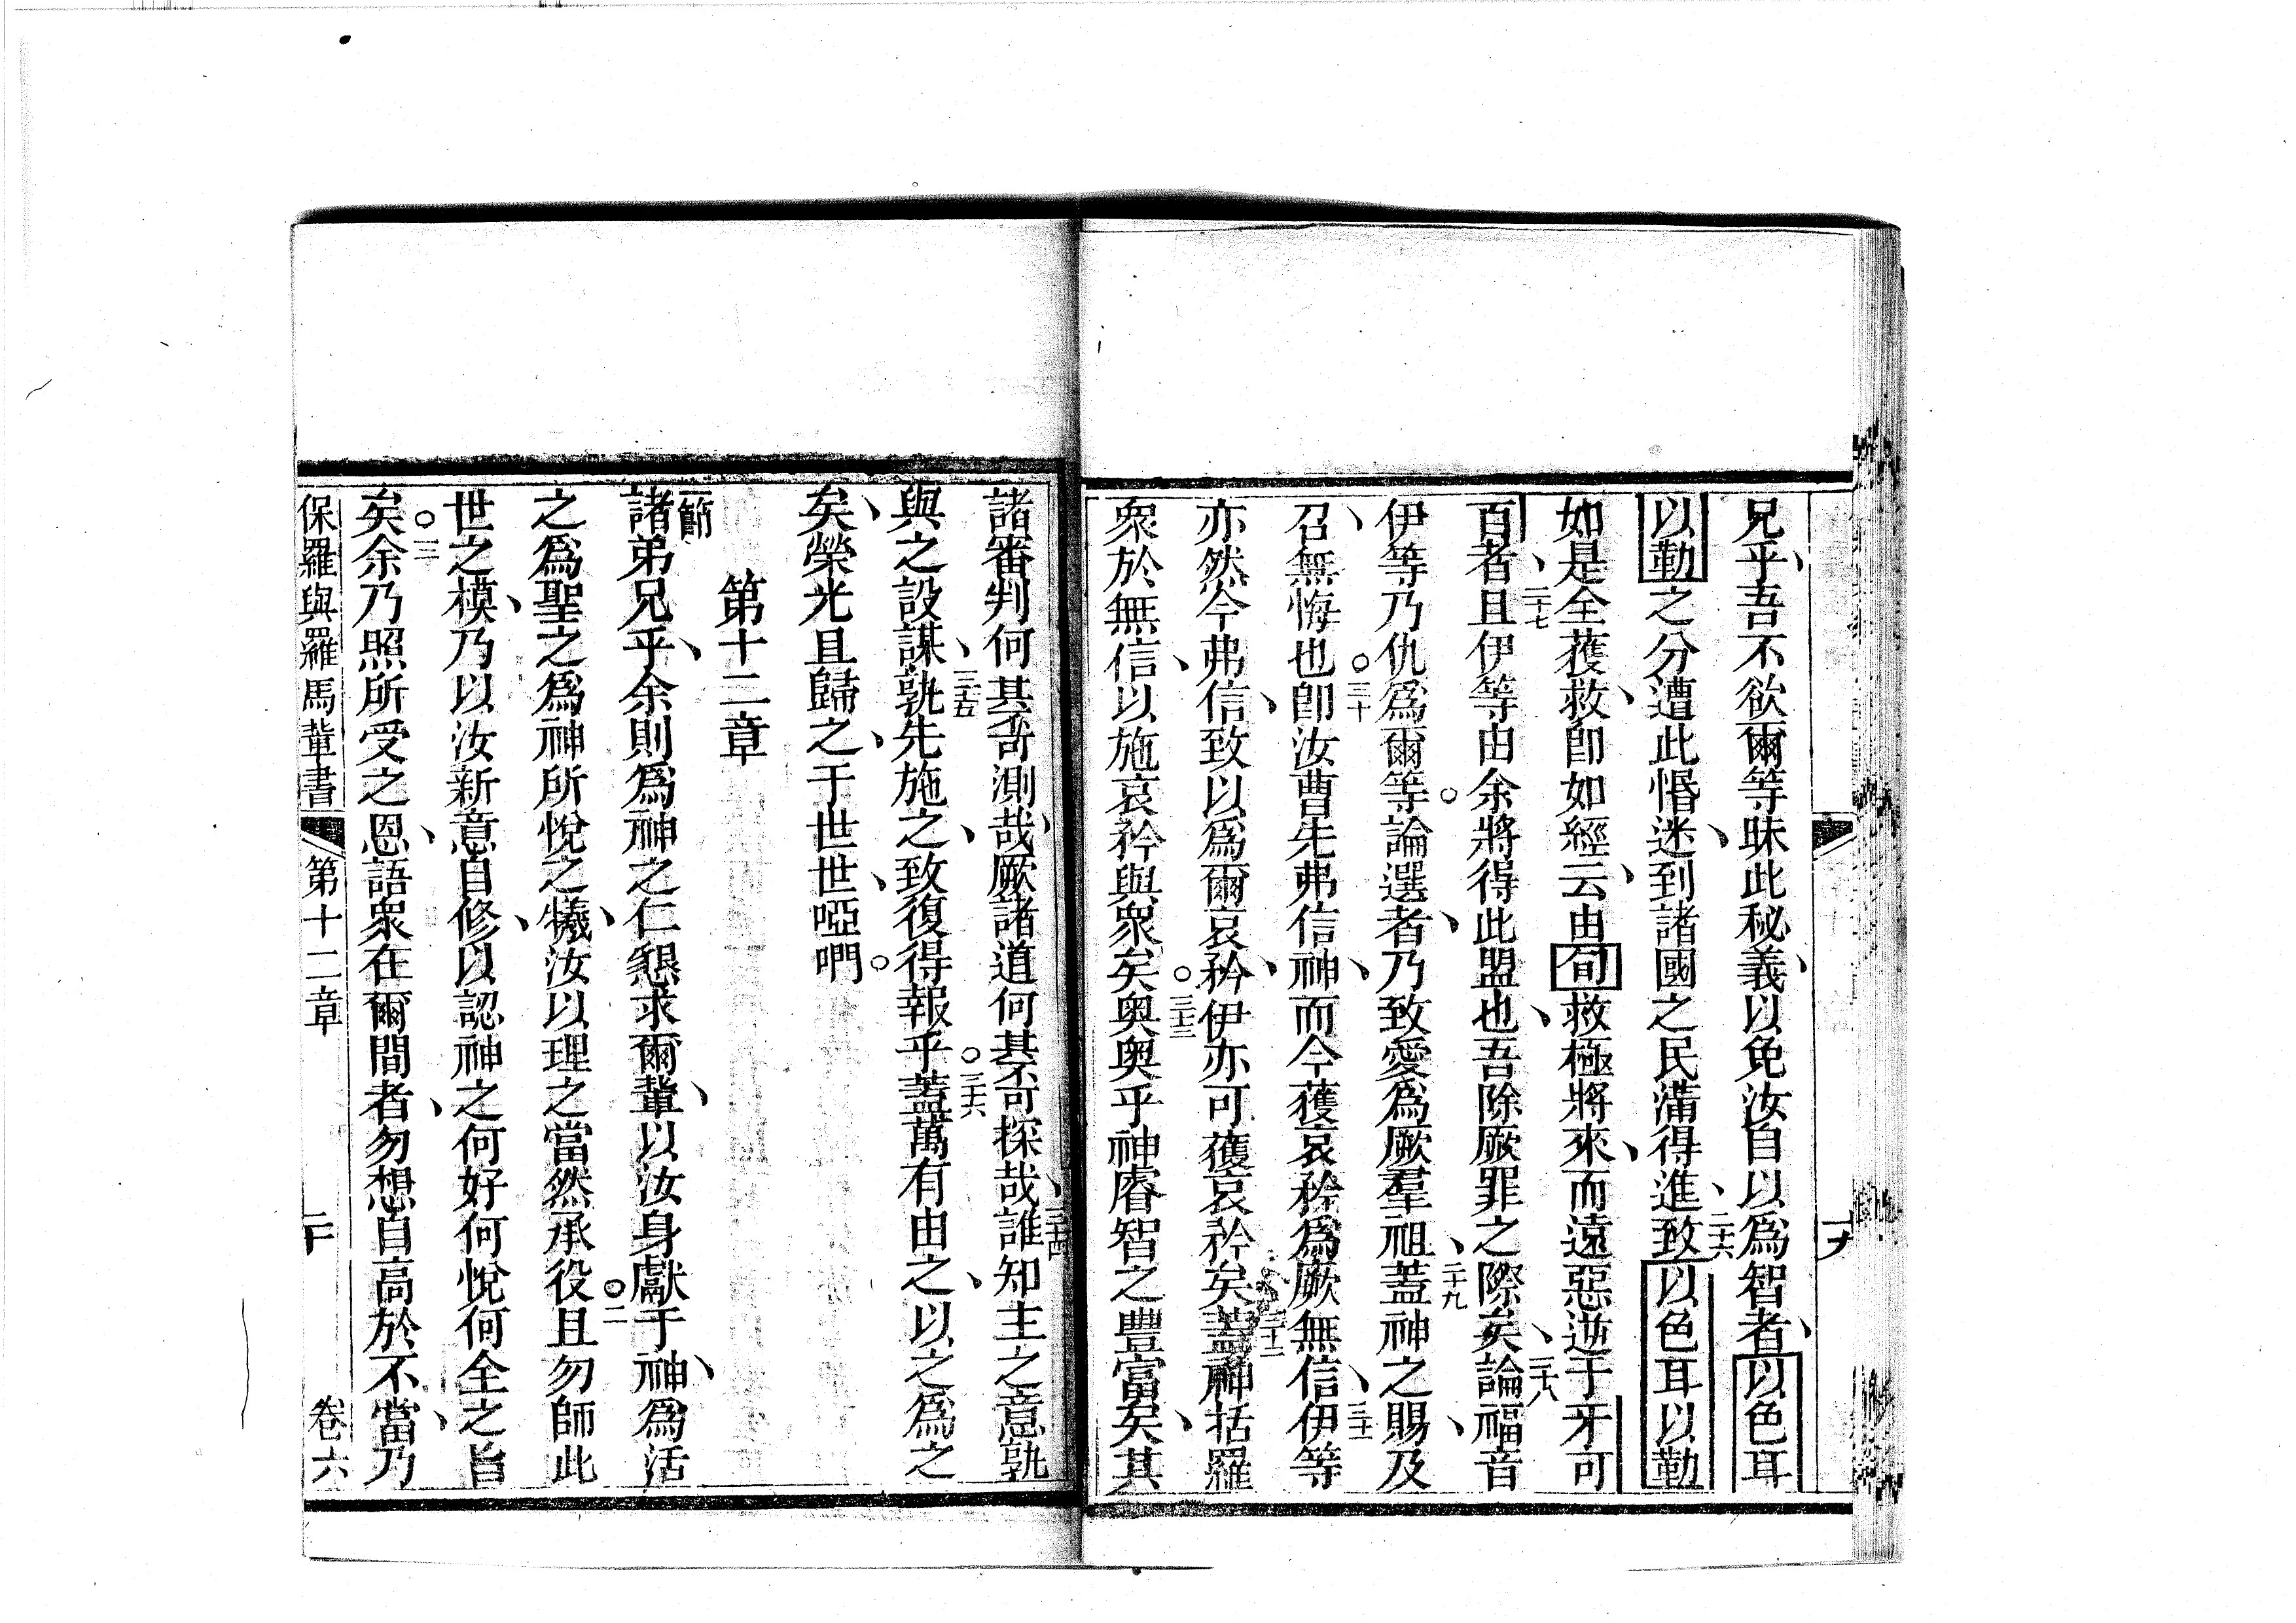 兄乎、吾不欲爾等昧此秘義、以免汝自以爲智者、以色耳
以勒之分遭此惛迷、到諸國之民滿得進、二十六致以色耳以勒
如是全獲救、卽如經云、由旬救極將來、而遠惡逆于牙可
百者、二十七且伊等由余將得此盟也、吾除厥罪之際矣、二十八論福音
伊等乃仇爲爾等。論選者、乃致愛爲厥羣祖、二十九蓋神之賜、及
召、無悔也。三十卽汝曹先弗信神、而今獲哀矜爲厥無信、三十一伊等
亦然今弗信、致以爲爾哀矜、伊亦可獲哀矜矣三十二蓋神括羅
衆於無信、以施哀矜與衆矣。三十三奥奥乎神睿智之豐富矣、其
諸審判何其不可測哉、厥諸道何其不可探哉、三十四誰知主之意孰
與之設謀、三十五孰先施之、致復得報乎。三十六蓋萬有由之、以之爲之
矣、榮光且歸之、于世世、啞們。
第十二章
一節
諸弟兄乎、余則爲神之仁懇求爾輩、以汝身獻于神、爲活
之爲聖之爲神所悅之犧、汝以理之當然承役。二且勿師此
世之模、乃以汝新意自修、以認神之何好何悅何全之旨
矣。三余乃照所受之恩、語衆在爾間者、勿想自高於不當、乃
保羅與羅馬輩書 第十二章 二十 卷六